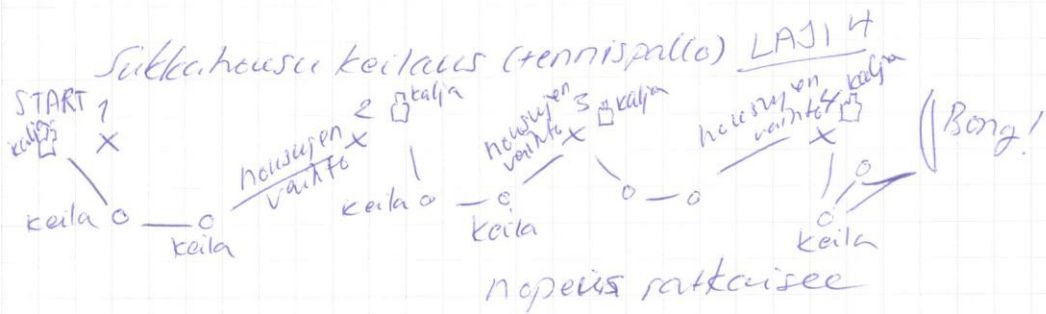 Sukkahousu keilaus (tennispallo) LAJI 4
START 1
kalja
X
keila
keila
housujen vaihto
2
X
kalja
keila
keila
housujen vaihto
3
X
kalja
housujen vaihto
4
X
kalja
keila
Bong!
nopeus ratkaisee